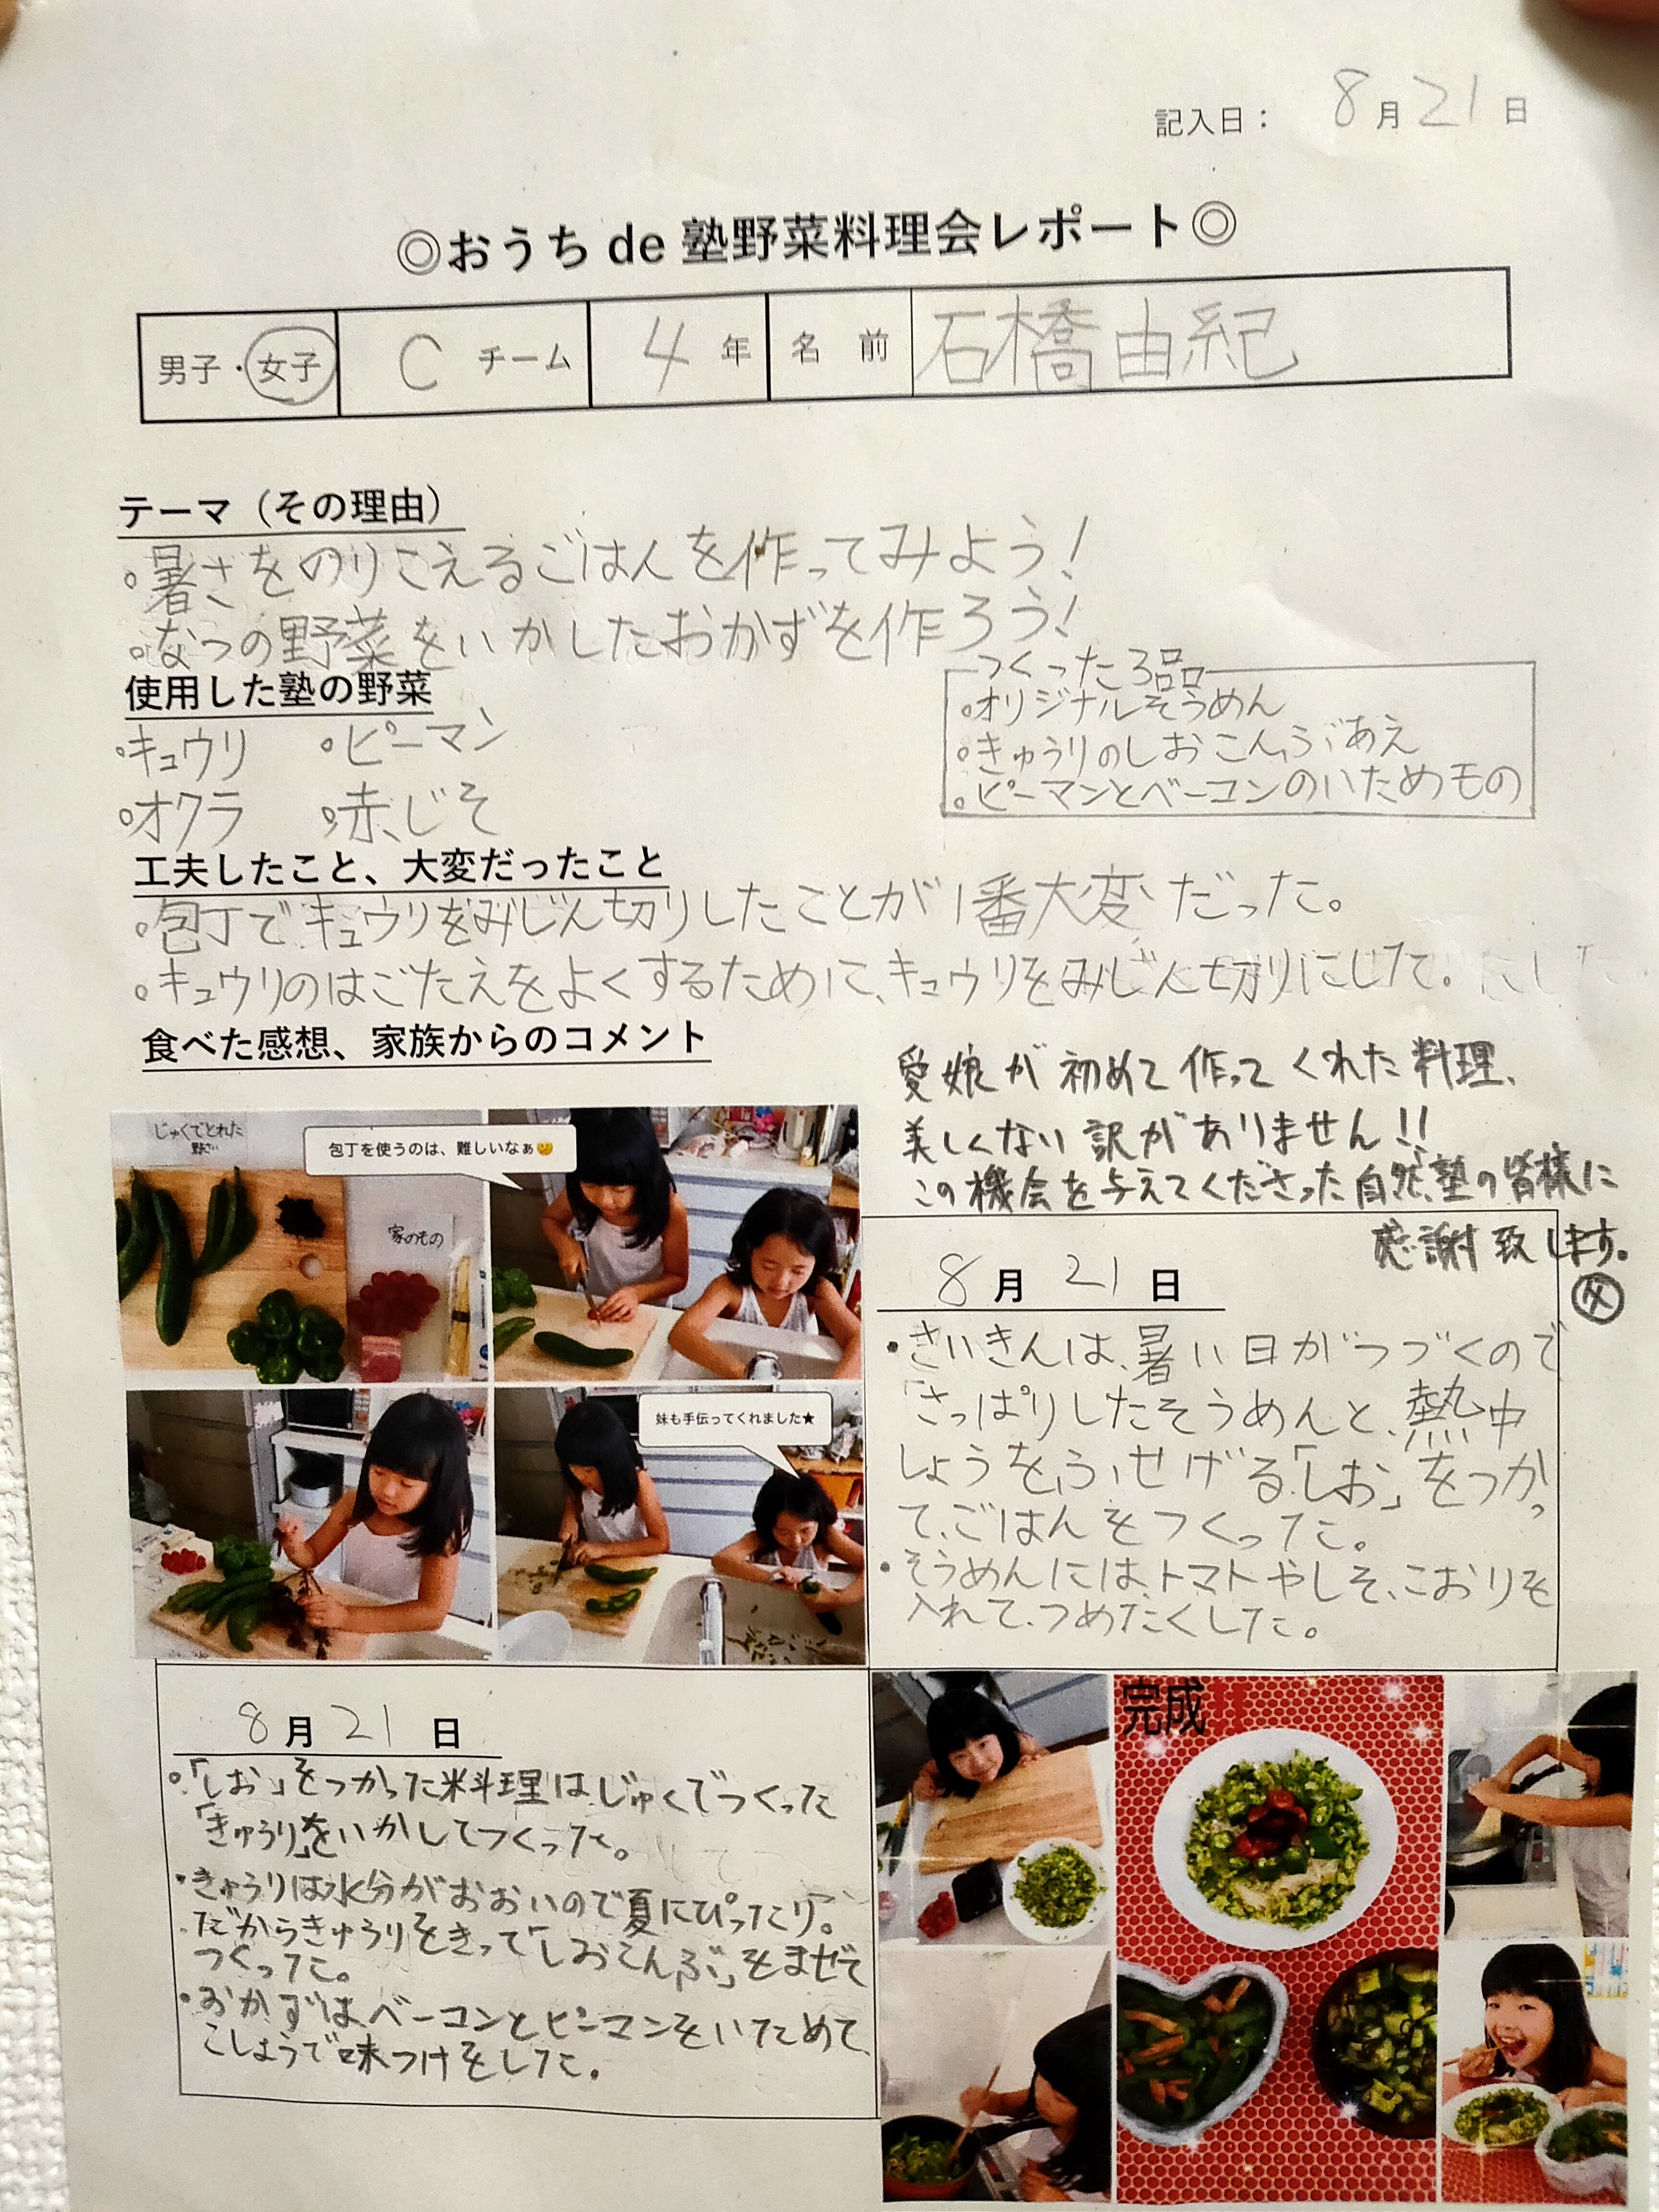 記入日： 8月21日
◎おうち de 塾野菜料理会レポート◎
男子・女子 C チーム 4 年 名前 石橋由紀
テーマ（その理由）
。暑さをのりこえるごはんを作ってみよう！
。なつの野菜をいかしたおかずを作ろう！
使用した塾の野菜
。キュウリ 。ピーマン
。オクラ 。赤じそ
つくった3品
。オリジナルそうめん
。きゅうりのしおこんぶあえ
。ピーマンとベーコンのいためもの
工夫したこと、大変だったこと
。包丁でキュウリをみじん切りしたことが1番大変だった。
。キュウリのはごたえをよくするために、キュウリをみじん切りにした。
食べた感想、家族からのコメント
愛娘が初めて作ってくれた料理、
美しくない訳がありません!!
この機会を与えてくださった自然塾の皆様に
感謝致します。
父
じゅくでとれた
野さい
家のもの
包丁を使うのは、難しいなぁ
妹も手伝ってくれました★
8月21日
・さいきんは、暑い日がつづくので
「さっぱりしたそうめんと、熱中
しょうをふせげる「しお」をつかっ
て、ごはんをつくった。
・そうめんには、トマトやしそ、こおりを
入れて、つめたくした。
8月21日
。「しお」をつかった料理はじゅくでつくった
「きゅうり」をいかしてつくった。
・きゅうりは水分がおおいので夏にぴったり。
だからきゅうりをきって「しおこんぶ」をまぜて
つくった。
・おかずは、ベーコンとピーマンをいためて、
こしょうで味つけをした。
完成!!